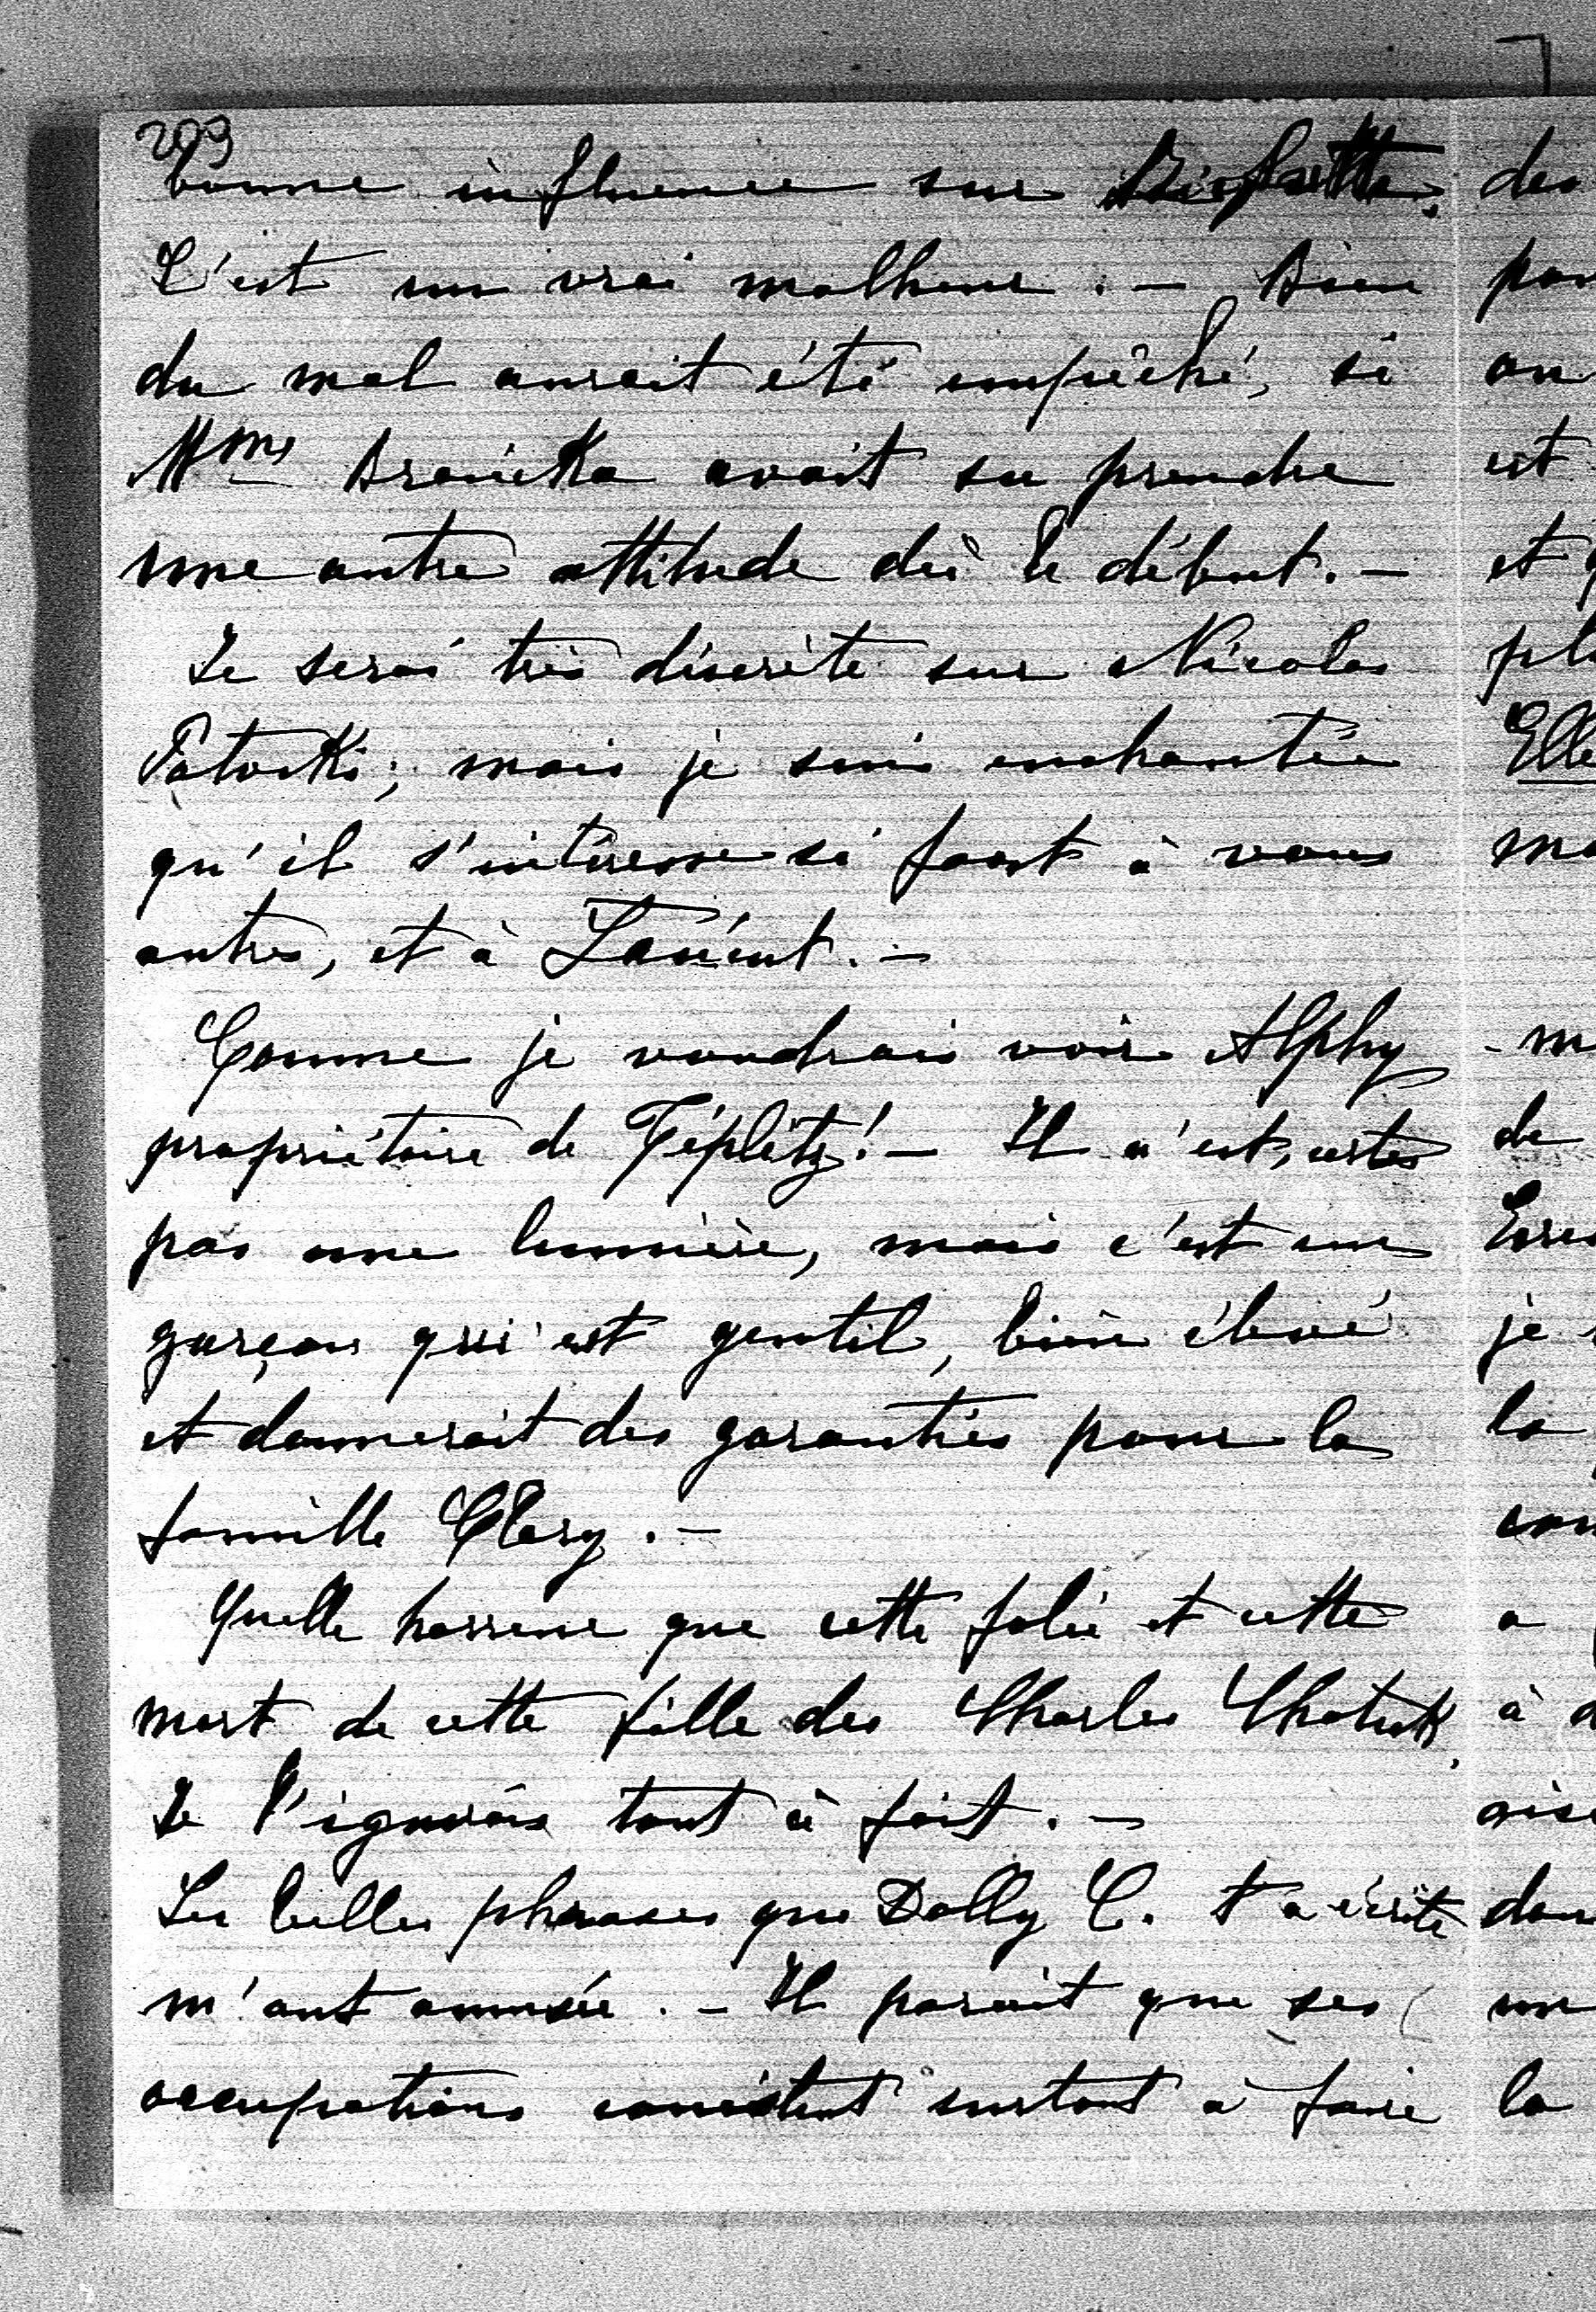 209
bonne influence sur
C'est un vrai malheur. – Bien
du mal aurait été empêché, si
Mme Branicka avait su prendre
une autre attitude dès le début. –
Je serai très discrète sur Nicolas
Potocki; mais je suis enchantée
qu'il s'intéresse si fort à vous
autres, et à Łańcut. –
Comme je voudrais voir Alphy
propriétaire de Téplitz! – Il n'est, certes
pas une lumière, mais c'est un
garçon qui est gentil, bien élevé
et donnerait des garanties pour la
famille Clary. –
Quelle horreur que cette folie et cette
mort de cette fille des Charles Chotek,
Je l'ignorais tout à fait. –
Les belles phrases que Dolly C. t'a écrite
m'ont amusée. – Il parait que ses
occupations consistent surtout à faire
des
est
et
Elle
de
je
la
a
à
la